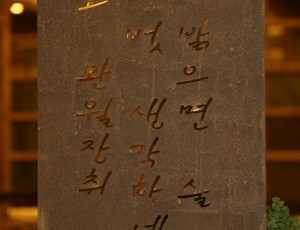 밝으면 술
벗 생각하네
완월장취